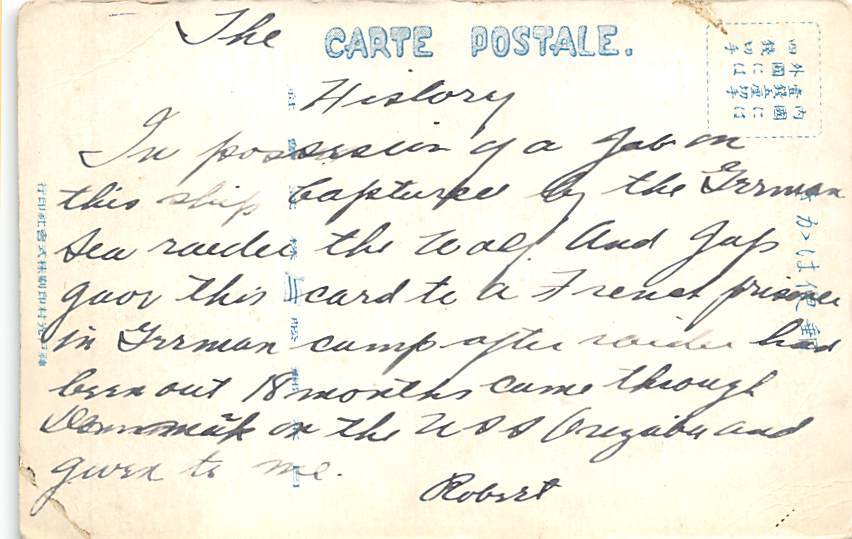 The
CARTE POSTALE.
History
In possession of a Jap on
this ship Captured by the German
Sea raider the Wolf. And Jap
gave this card to a French prisoner
in German camp after raider had
been out 18 months came through
Denmark on the USS Orizaba and
given to me.
Robert
内國ニ壹錢五厘切手
外國ニは四錢切手
郵便はかき